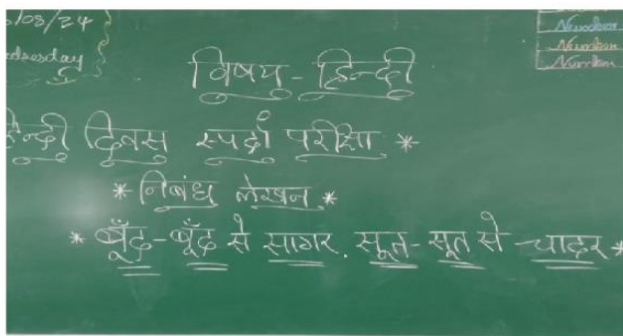 /08/24
Wednesday
Number
Number
Number
विषय - हिन्दी
हिन्दी दिवस स्पर्धा परीक्षा *
* निबंध लेखन *
* बूँद-बूँद से सागर. सूत-सूत से चादर *